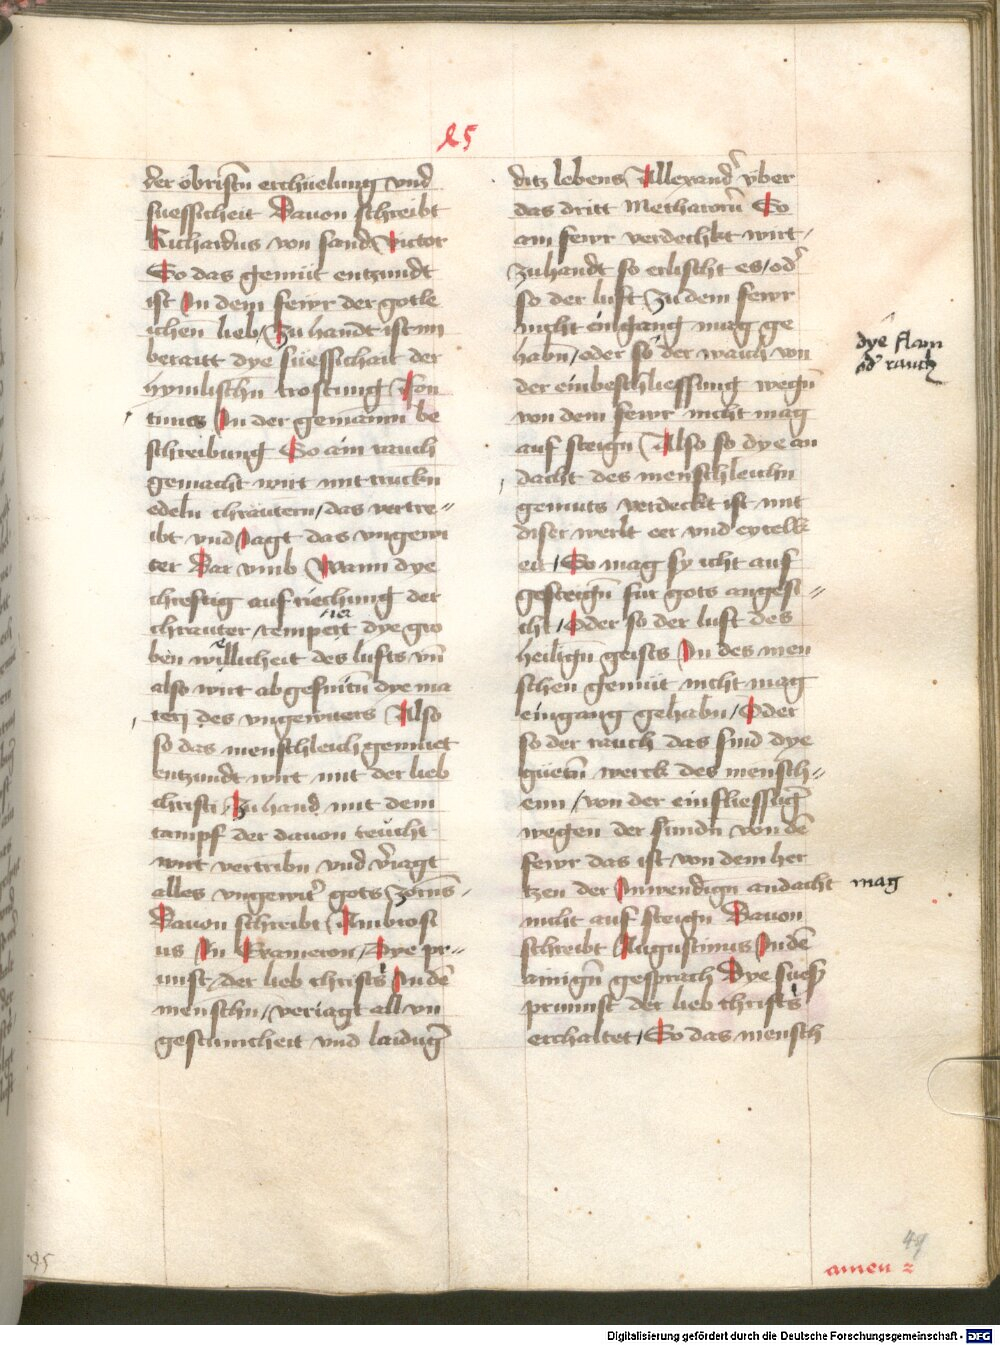 45
der obristn erchuelung vnd
suessicheit Dauon schreibt
Richardus von sand Victor
So das gemüt entzundt
ist In dem fewr der gotle
ichen lieb / Zu handt ist im
beraitt dye süessichait der
hymlischn trostung Fon
tinus In der gemainn be
schreibung So ain rauch
gemacht wirt mit truckn
edeln chrautern / das vertre=
ibt vnd Jagt das vngewi
ter Dar vmb Wann dye
chreftig auf riechung der
chrauter / tempert dye gro
ben willicheit des lufts vn̄
also wirt abgesnitn̄ dye ma
teri des vngewiters Also
so das menschleich gemuet
entzundt wirt mit der lieb
christi / Zu hand mit dem
tampf der dauon reucht
wirt vertribn vnd v̉iagt
alles vngewit̉ gots zorns
Dauon schreibt Ambrosi
us In Exameron / Dye pr=
unst / der lieb christi In dē
menschn / veriagt all vn
gestumicheit vnd laidug̉
ditz lebens Allexand̉ vber
das dritt Methaworū So
ain fewr verdechkt wirt /
zuhandt so erlischt es / od̉
so der luft zu dem fewr
nicht eingang mag ge
habn / oder so der rauch von
der einbeschliessung wegn̄
von dem fewr nicht mag
auf steign Also so dye an
dacht des menschleichn
gemuts verdeckt ist mit
diser werlt eer vnd eytelk
eit / So mag sy icht auf
gesteign̄ fur gots angesi=
cht / Oder so der luft des
heilign̄ geists In des men
schen gemüt nicht mag
eingang gehabn / Oder
so der rauch das sind dye
güetn̄ werck des mensch=
enn / von der einfliessug̉
wegen der sundn̄ von dē
fewr das ist von dem her
tzen der Inwendign andacht
nicht auf steign Dauon
schreibt Augustinus In dē
ainign̄ gesprach Dye sües
prunnst der lieb christi
erchaltet / So das mensch
dye flam
od̉ rauch
mag
45
49
amen 2
Digitalisierung gefördert durch die Deutsche Forschungsgemeinschaft - DFG